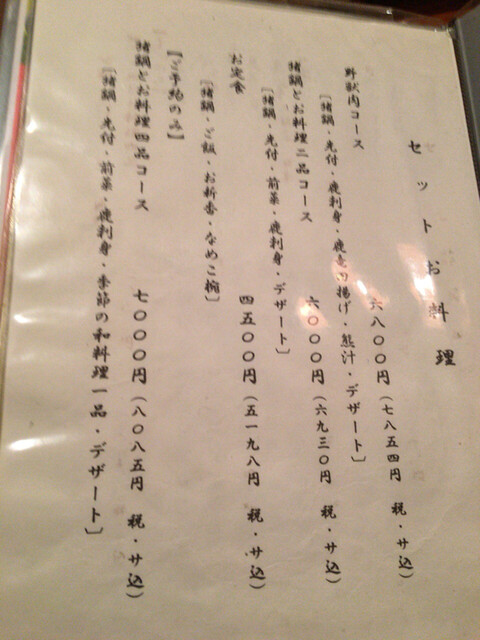 セットお料理
野獣肉コース 六八〇〇円(七八五四円 税・サ込)
[猪鍋・先付・鹿刺身・鹿竜田揚げ・熊汁・デザート]
猪鍋とお料理三品コース 六〇〇〇円(六九三〇円 税・サ込)
[猪鍋・先付・前菜・鹿刺身・デザート]
お定食 四五〇〇円(五一九八円 税・サ込)
[猪鍋・ご飯・お新香・なめこ椀]
【ご予約のみ】
猪鍋とお料理四品コース 七〇〇〇円(八〇八五円 税・サ込)
[猪鍋・先付・前菜・鹿刺身・季節の和料理一品・デザート]